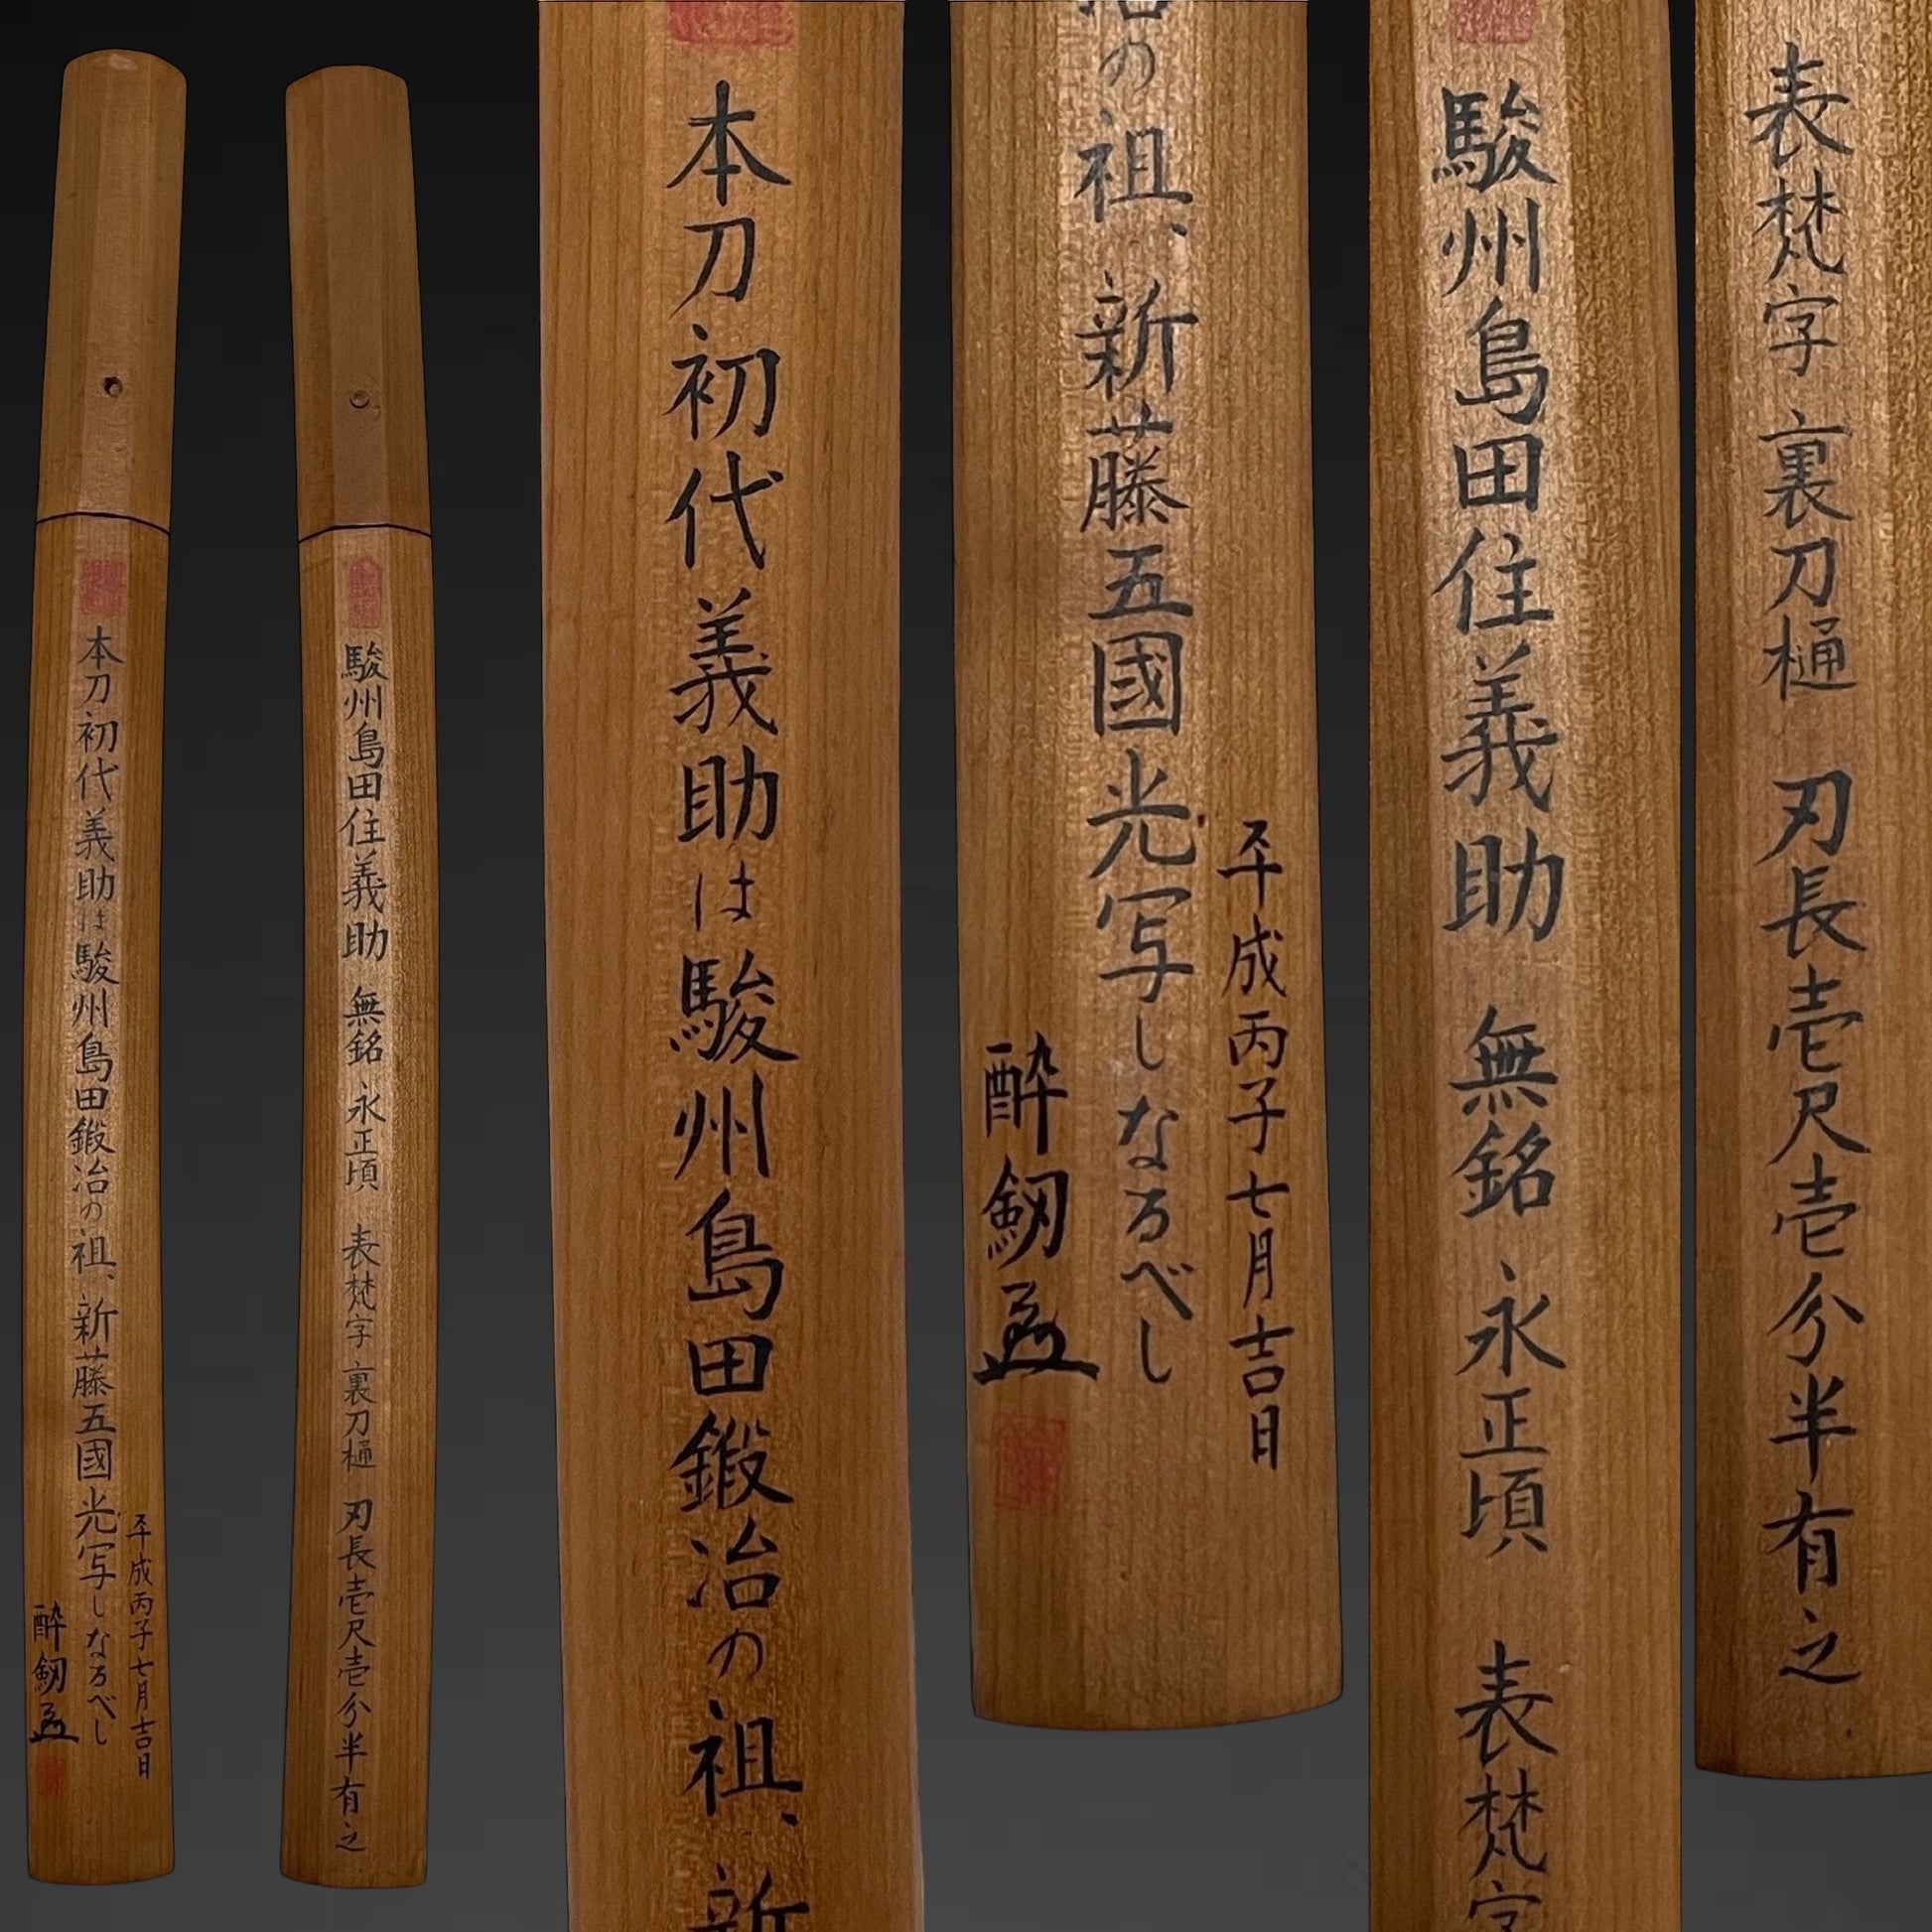 本刀初代義助は駿州島田鍛冶の祖、新藤五國光写しなるべし
平成丙子七月吉日
酔劔
駿州島田住義助 無銘 永正頃 表梵字 裏刀樋 刃長壱尺壱分半有之
本刀初代義助は駿州島田鍛冶の祖、新
冶の祖、新藤五國光写しなるべし
平成丙子七月吉日
酔劔
駿州島田住義助 無銘 永正頃 表梵字
表梵字 裏刀樋 刃長壱尺壱分半有之